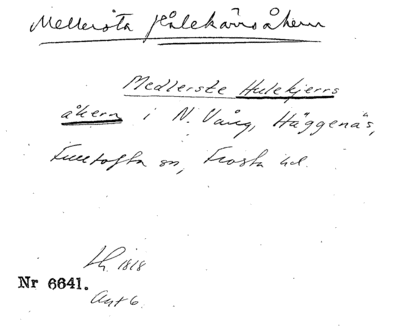 Mellersta Hålekärrsåkern
Medlerste Hulekjerrs
åkern i N. Vång, Häggenäs,
Fulltofta sn, Frosta hd.
Lh. 1818
Nr 6641.
Akt 6